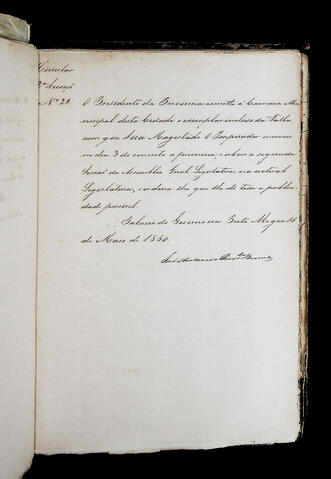 Circular
2ª Secçaõ
Nº 24 O Presidente da Provincia remette á Camara Mu
nicipal desta Cidade o exemplar incluso da Falla
com que Sua Magestade O Imperador
no dia 3 do corrente a primeira, e abrio a segunda
Sessaõ da Assemblea Geral Legislativa, na actual
Legislatura, e ordena que lhe dê toda a publici
dade possivel.
Palacio do Governo em Porto Alegre 18
de Maio de 1850.
José Antonio